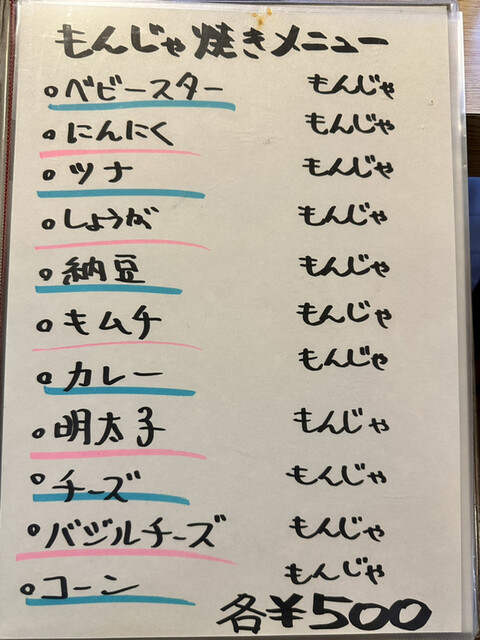 もんじゃ焼きメニュー
○ベビースター もんじゃ
○にんにく もんじゃ
○ツナ もんじゃ
○しょうが もんじゃ
○納豆 もんじゃ
○キムチ もんじゃ
○カレー もんじゃ
○明太子 もんじゃ
○チーズ もんじゃ
○バジルチーズ もんじゃ
○コーン もんじゃ
各¥500